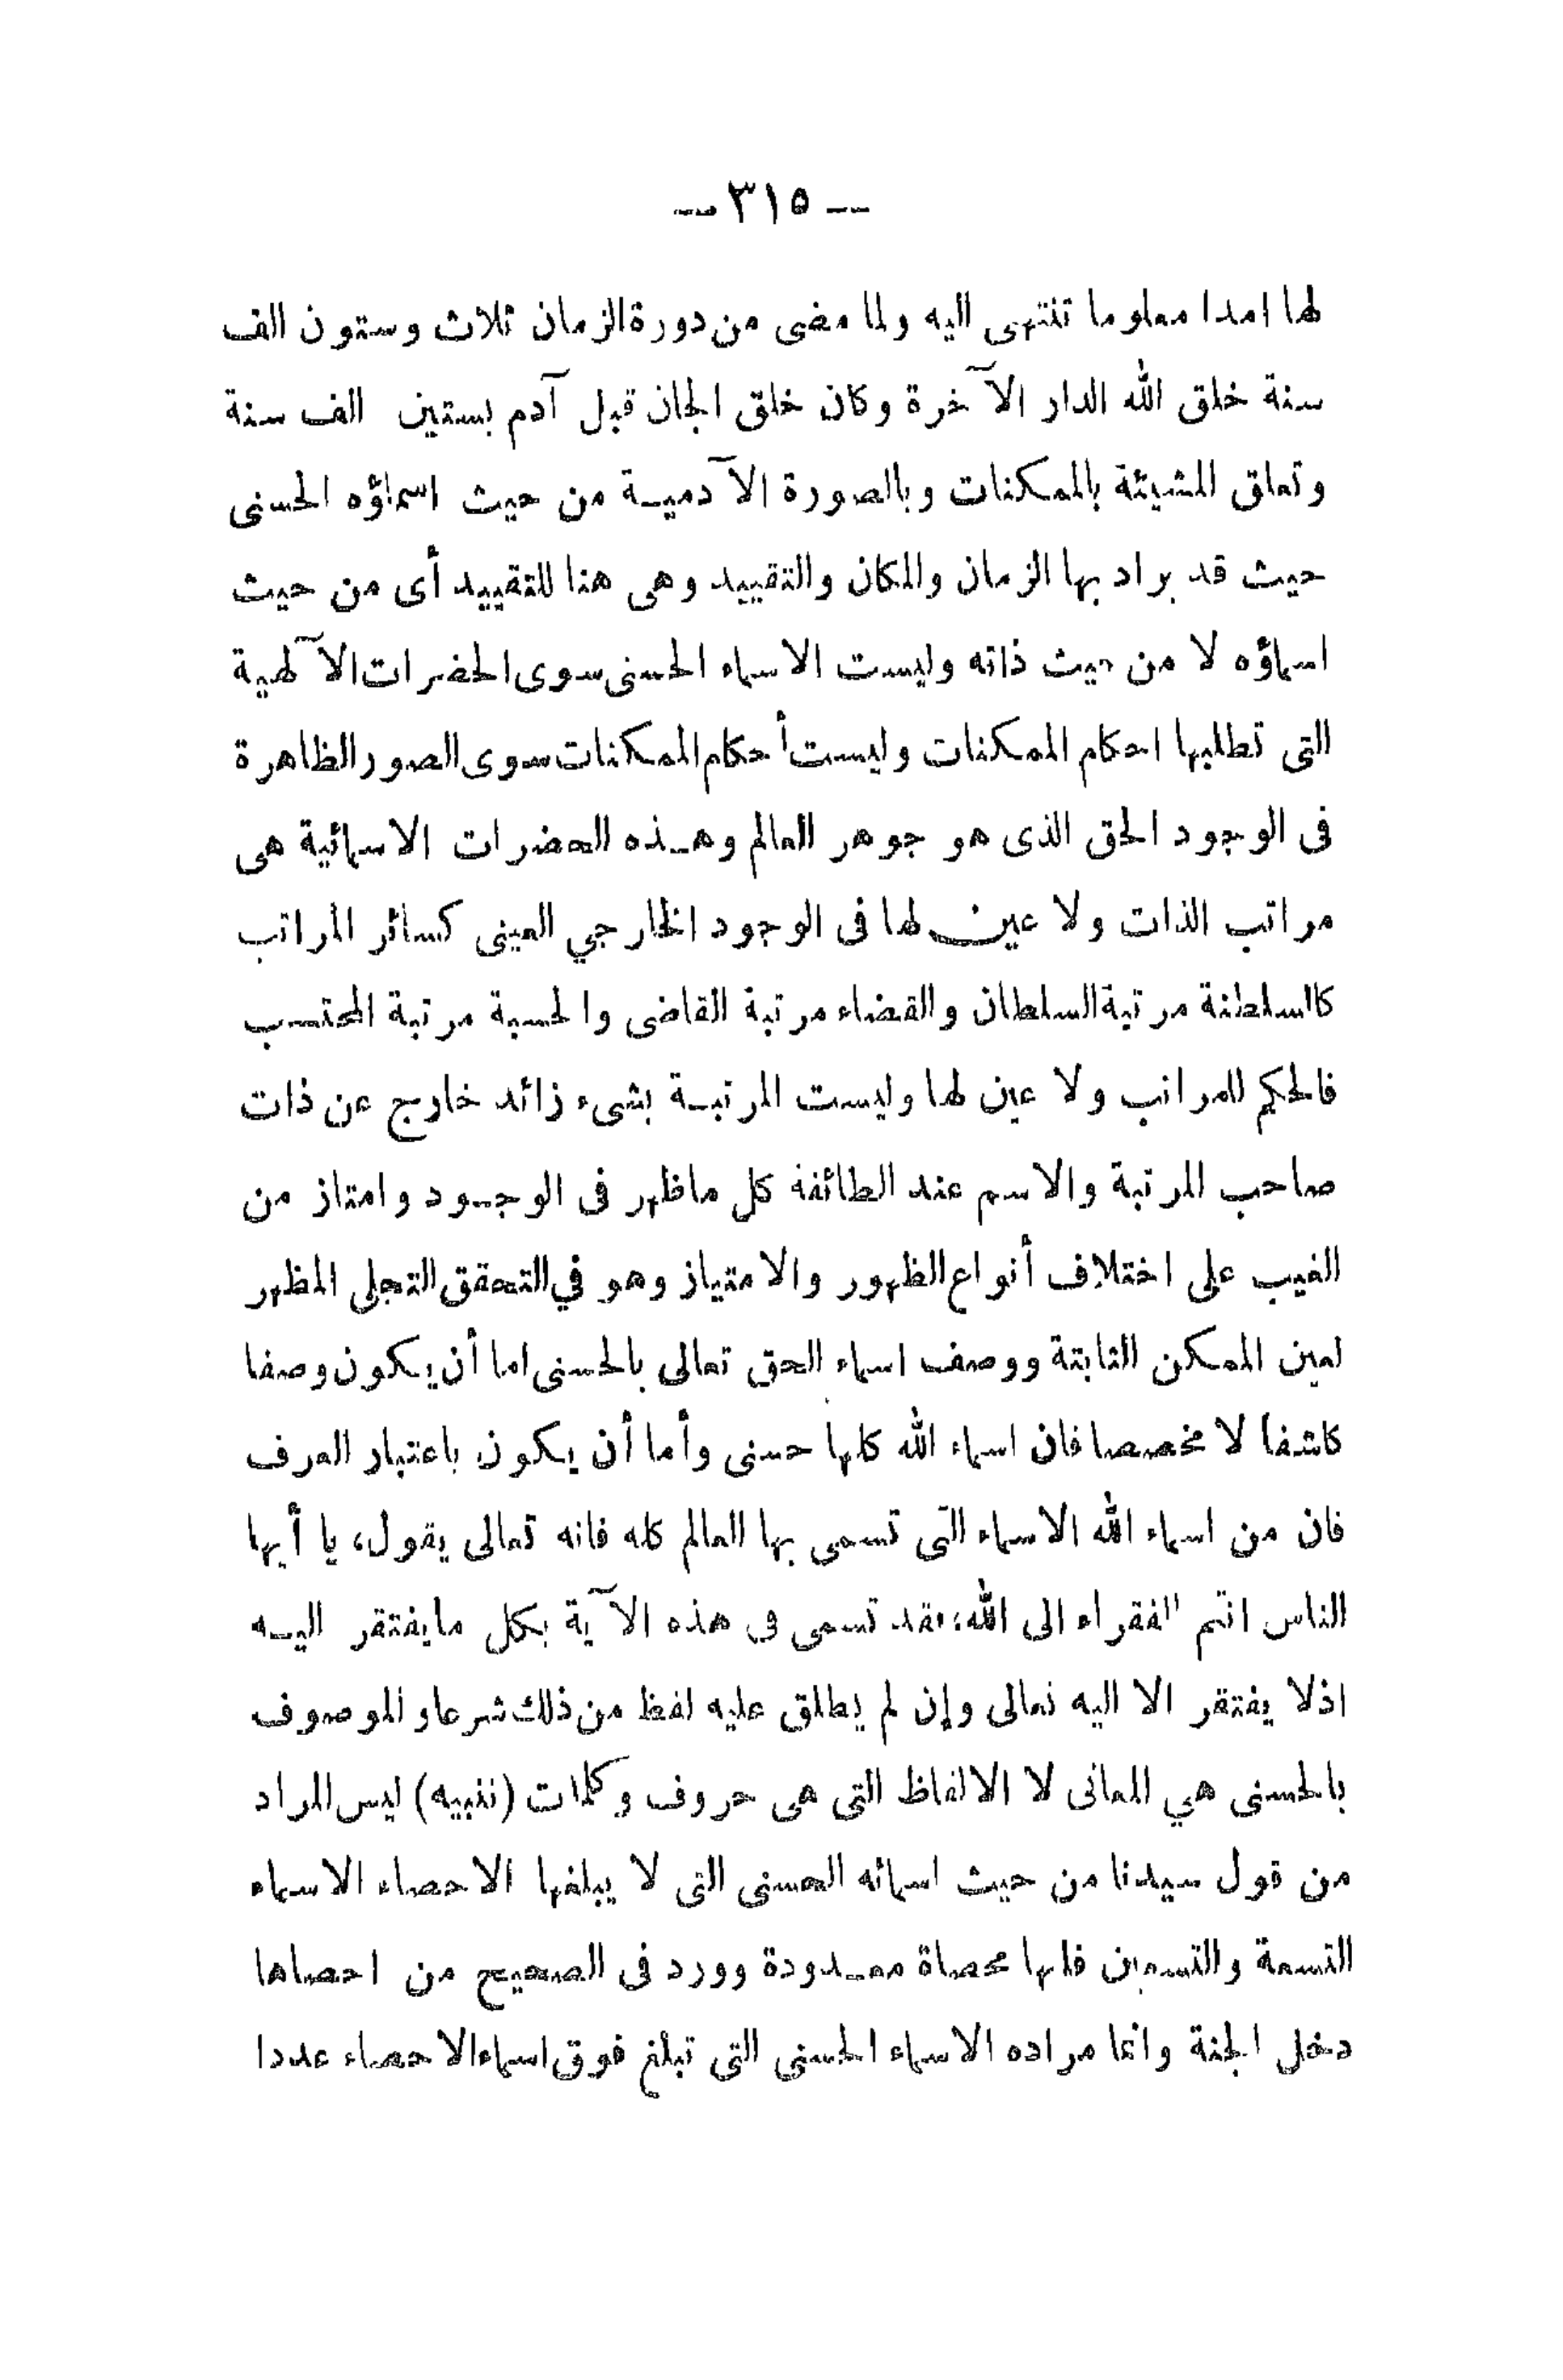 — ٣١٥ —
لها امدا معلوما تنتهى اليه ولما مضى من دورة الزمان ثلاث وستون الف
سنة خلق الله الدار الآخرة وكان خلق الجان قبل آدم بستين الف سنة
وتعلق المشيئة بالممكنات وبالصورة الآدمية من حيث اسماؤه الحسنى
حيث قد يراد بها الزمان والمكان والتقييد وهى هنا للتقييد أى من حيث
اسماؤه لا من حيث ذاته وليست الاسماء الحسنى سوى الحضرات الآلهية
التى تطلبها احكام الممكنات وليست أحكام الممكنات سوى الصور الظاهرة
فى الوجود الحق الذى هو جوهر العالم وهذه الحضرات الاسمائية هى
مراتب الذات ولا عين لها فى الوجود الخارجي العينى كسائر المراتب
كالسلطنة مرتبة السلطان والقضاء مرتبة القاضى والحسبة مرتبة المحتسب
فالحكم للمراتب ولا عين لها وليست المرتبة بشىء زائد خارج عن ذات
صاحب المرتبة والاسم عند الطائفة كل ماظهر فى الوجود وامتاز من
الغيب على اختلاف أنواع الظهور والامتياز وهو في التحقق التجلى المظهر
لعين الممكن الثابتة ووصف اسماء الحق تعالى بالحسنى اما أن يكون وصفا
كاشفا لا مخصصا فان اسماء الله كلها حسنى وأما أن يكون باعتبار العرف
فان من اسماء الله الاسماء التى تسمى بها العالم كله فانه تعالى يقول، يا أيها
الناس انتم الفقراء الى الله، فقد تسمى فى هذه الآية بكل مايفتقر اليه
اذلا يفتقر الا اليه تعالى وإن لم يطلق عليه لفظ من ذلك شرعا والموصوف
بالحسنى هي المعانى لا الالفاظ التى هى حروف وكلمات (تنبيه) ليس المراد
من قول سيدنا من حيث اسمائه الحسنى التى لا يبلغها الاحصاء الاسماء
التسعة والتسعين فانها محصاة معدودة وورد فى الصحيح من احصاها
دخل الجنة وانما مراده الاسماء الحسنى التى تبلغ فوق اسماء الاحصاء عددا